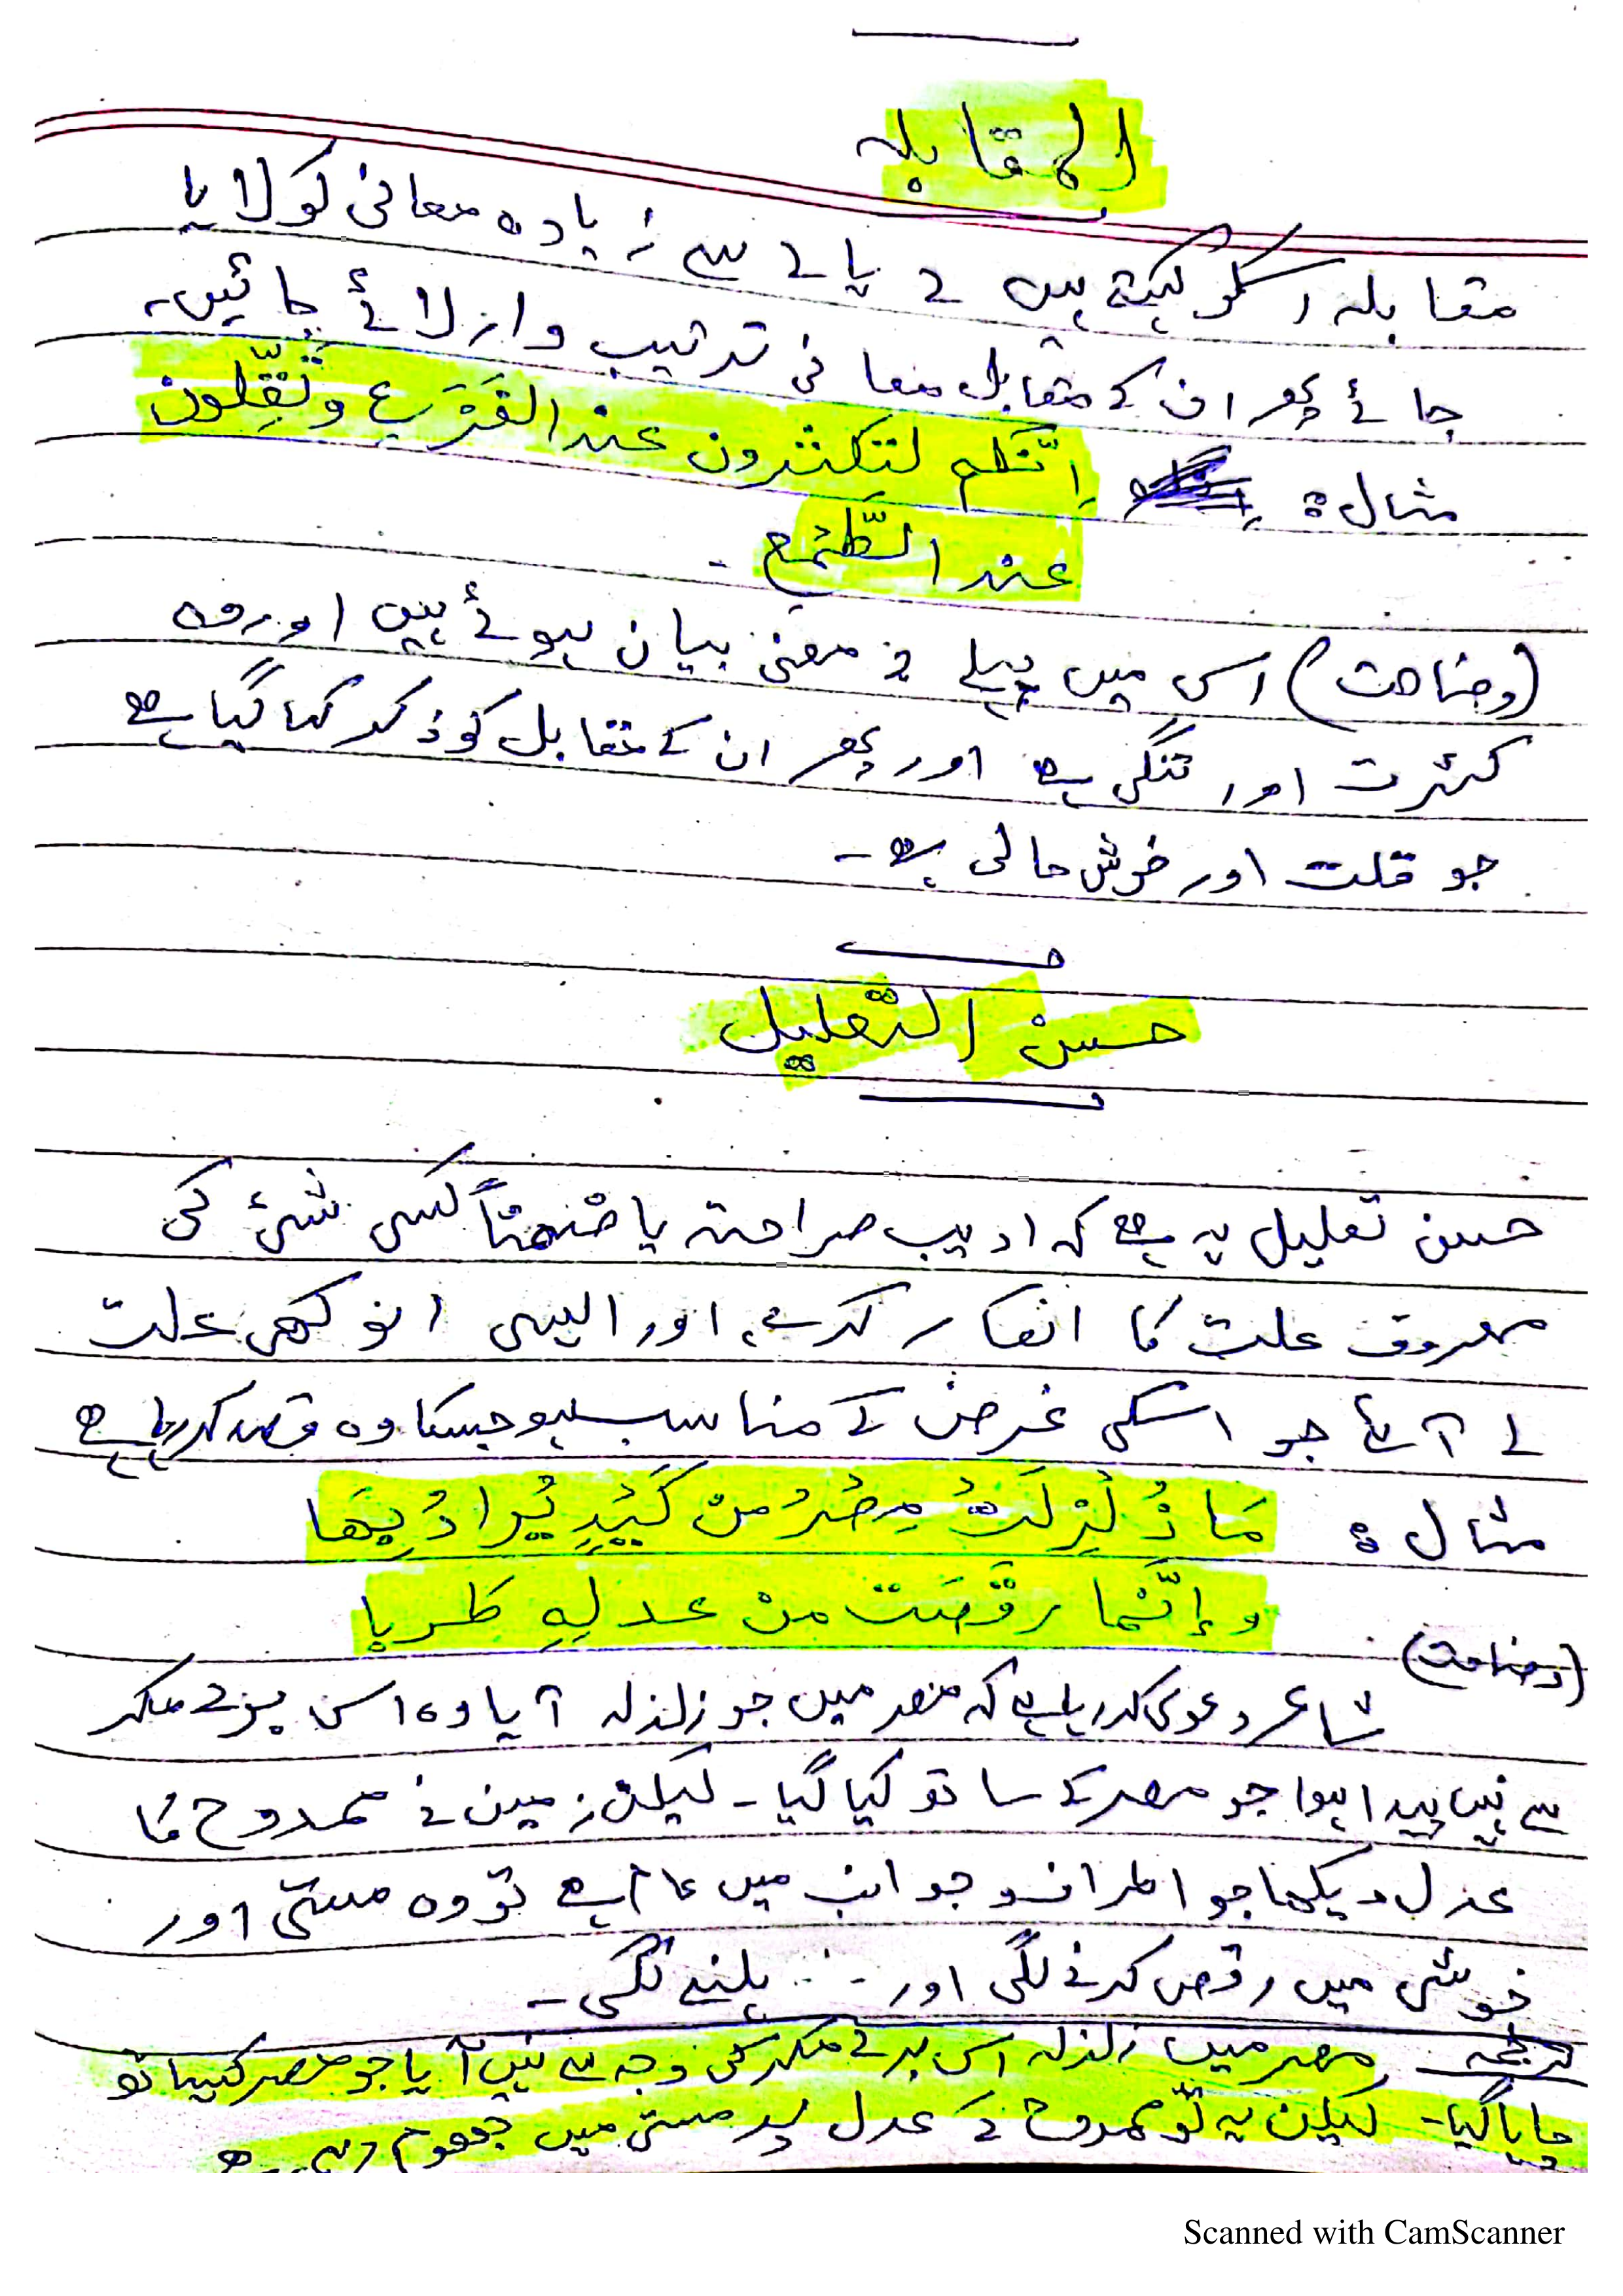 المقابلہ
مقابلہ اسکو کہتے ہیں 2 یا 2 سے زیادہ معانی کو لایا
جائے پھر ان کے مقابل معانی ترتیب وار لائے جائیں،
مثال: إنّکم لتکثرون عند الفَزَع وتُقِلّون
عند الطَّمع۔
(وضاحت) اس میں پہلے 2 معنی بیان ہوئے ہیں اور وہ
کثرت اور تنگی ہے اور پھر ان کے مقابل کو ذکر کیا گیا ہے
جو قلت اور خوش حالی ہے۔
حسن التعلیل
حسن تعلیل یہ ہے کہ ادیب صراحتہ یا ضمناً کسی شئ کی
معروف علت کا انکار کرے، اور ایسی انوکھی علت
لے آئے جو اسکی غرض کے مناسب ہو جسکا وہ قصد کررہا ہے
مثال: مَا زُلْزِلَتْ مِصْرُ مِنْ كَيْدٍ يُرادُ بِهَا
وإنَّما رقْصَت منْ عدلِهِ طربا
(وضاحت)
شاعر دعوی کررہا ہے کہ مصر میں جو زلزلہ آیا وہ اس برے مکر
سے نہیں پیدا ہوا جو مصر کے ساتھ کیا گیا۔ لیکن زمین نے ممدوح کا
عدل دیکھا جو اطراف و جوانب میں عام ہے تو وہ مستی اور
خوشی میں رقص کرنے لگی اور ہلنے لگی۔
ترجمہ مصر میں زلزلہ اس برے مکر کی وجہ سے نہیں آیا جو مصر کیساتھ
چاہا گیا۔ لیکن یہ تو ممدوح کے عدل پر مستی میں جھوم رہی ہے
Scanned with CamScanner